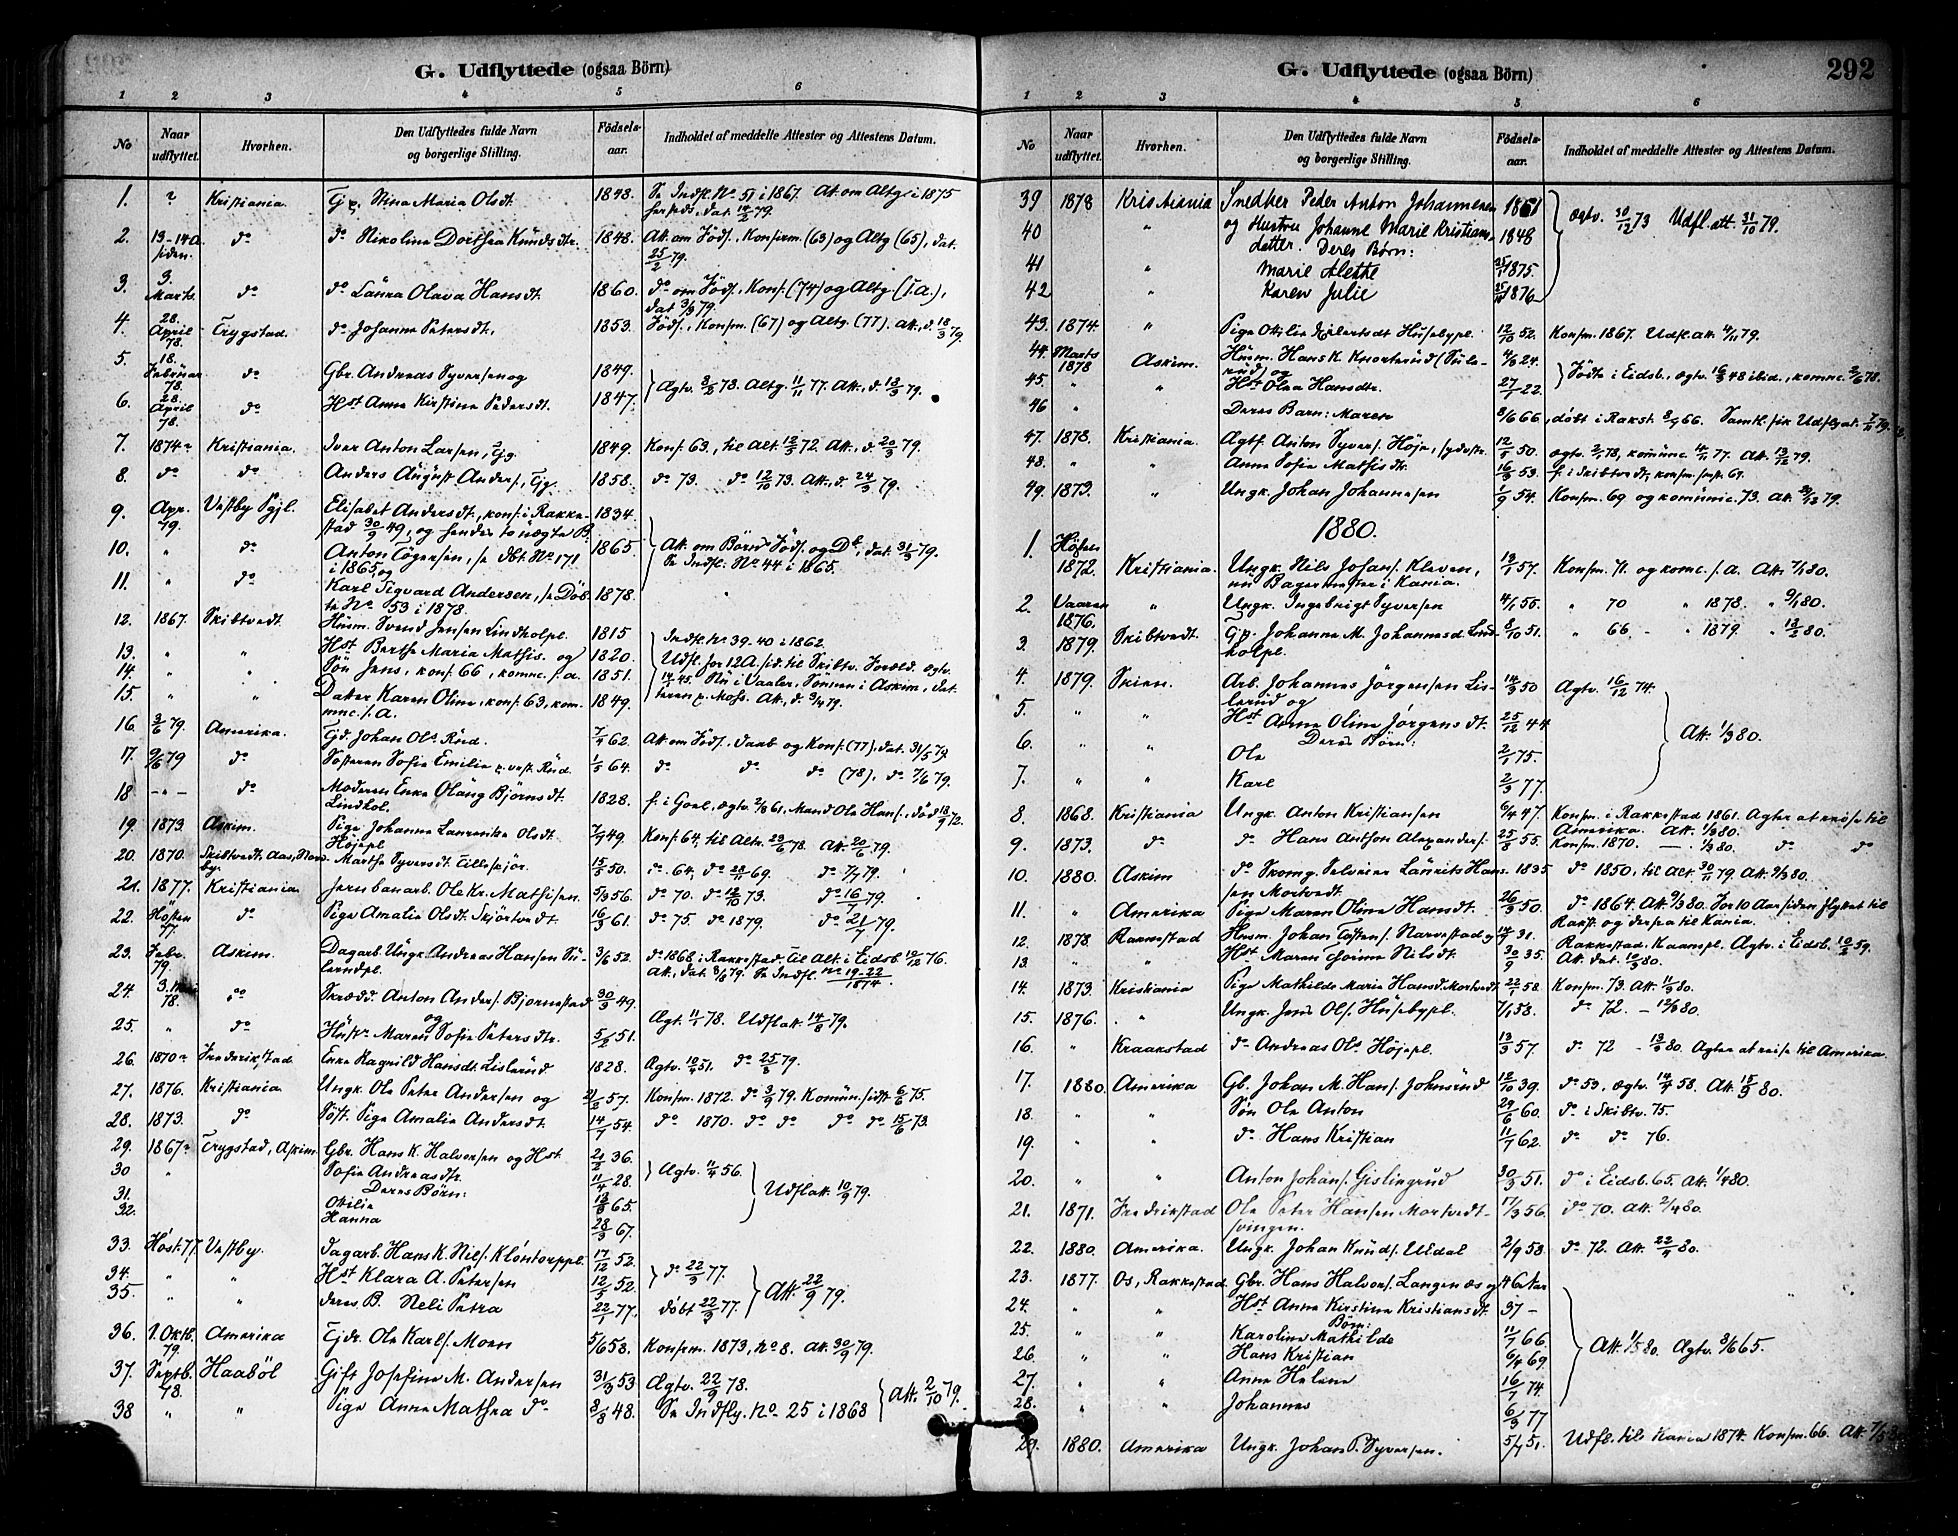 G. Udflyttede (ogsaa Börn)
1 2 3 4 5 6
No Naar udflyttet. Hvorhen. Den Udflyttedes fulde Navn og borgerlige Stilling. Födselsaar. Indholdet af meddelte Attester og Attestens Datum.
1. " Kristiania. Nina Maria Olsdt. 1848. Se Indfl. No 51 i 1867. Att. om Altg. i 1875
dat. 14/2 79.
2. 13-14 A. siden. do do Nikolina Dorthea Knudsdtr. 1848. Att. om Födf., Konfirm. (63) og Altg (65), dat.
25/2 79.
3. 3. Marts. do do Laura Olava Hansdt. 1860. do om Födf., Konf. (74) og Altg. (s.a.),
dat 3/3 79.
4. 28. April 78. Trygstad. do Johanne Petersdt. 1853. Födf., Konfm. (67) og Altg. (77). Att., d. 18/3 79.
5. 18. Februar 78. do Gbr. Andreas Syversen og 1849.
6. 28. April 78. do Hst Anne Kirstine Pedersdt. 1847. Ægtv. 78. Altg. 11/11 77. Att., d. 79.
7. 1874 Kristiania. Iver Anton Larsen, 1849. Konf. 63, til Alt. 72. Att., d. 20/3 79.
8. do do Anders August Anders., 1858. do 73. do 12/10 73. Att., d. 24/3 79.
9. Apr. 79. Vestby Pgjl. Elisabet Andersdt., konf. i Rakke- 1834.
stad 30/9 49, og hendes to uægte B.
10. " do Anton Tögersen, se dbt. No 171 1865. Att. om Börns Födf. og Db., dat. 31/3 79.
i 1865, og Se Indfl. No 44 i 1865.
11. " do Karl Sigvard Andersen, se Döb- 1878.
te No 53 i 1878.
12. 1867. Skibtvedt. Husm. Svend Jensen Lindholpl. 1815 Indfl. No 39-40 i 1862.
13. " " Hst Berthe Maria Mathis. og 1820. Udfl. for 12 A. sid. til Skibtv. Foræld. ægtv.
14. " " Sön Jens, konf. 66, komm. s.a. 1851. 14/4 45. Nu i Vaaler, Sönnen i Askim, Dat-
15. " " Datter Karen Oline, konf. 63, kom- 1849. teren p. Moss. Att., d. 3/4 79.
mnc. s. a.
16. 3/6 79. Amerika. Gd. Johan Ols. Rud. 7/4 62. Att. om Födf., Daab og Konf. (77), dat. 31/5 79.
17. 9/6 79 do Søsteren Sofie Emilie p. vest. Rud. 1/5 64. do do do (78), do 7/6 79.
18 — " — do Moderen Enke Olaug Björnsdt. 1828. f. i Goel, ægtv. 2/8 61, Mand Ole Hans., död 18/9 72.
Lindhol.
19. 1873. Askim. Pige Johanne Laurentze Olsdt. 7/9 49. Konf. 64, til Altr. 78. Att. 20/6 79.
Höjepl
20. 1870. Skibtvedt, Aas, Nord- Marthe Syversdt. 15/5 50. do 64, do 69. do 7/7 79.
by.
21. 1877. Kristiania Jernbanarb. Ole Kr. Mathisen. 5/3 56. do 70. do 12/10 73. do 16/7 79.
22. Hösten 77. do Pige Amalie Olsdt. Skjörtvedt. 16/3 61. do 75 do 1879. do 21/7 79.
23. Febr. 79. Askim. Dagarb. Ungk. Andreas Hansen Su- 3/6 52. do 1868 i Rakkestad. Til Alt. i Eidsb. 76.
lerudpl. Att., dat. 8/8 79. Se Indfl. No 19-22 1874.
24. 3. Mai 78. do Skrædd. Anton Anders. Bjornestad 30/3 49.
og Ægt. 11/1 78. Udfl att. 14/8 79.
25. " do Hustr. Maren Sofie Petersdtr. 5/2 51.
26. 1870 Frederikstad Enke Ragnild Hansdt. Lislerud 1828. Ægtv. 10/4 51. do 25/8 79.
27. 1876. Kristiania Ungk. Ole Peter Andersen og 21/2 57. Konfm. 1872. do 3/9 79. Kommun. sidst 6/6 75.
28. 1873. do Söst. Pige Amalie Andersdt. 14/7 54. do 1870. do do do do 15/6 73.
29. 1867 Trygstad, Askim. Gbr. Hans K. Halvorsen og Hst. 21/2 36.
30 " Sofie Andreasdtr. 11/4 28. Ægtv. 11/4 56.
Deres Börn: Udflatt. 10/9 79.
31. Otilie 65.
32. Hanna 28/3 67.
33. Höst. 77. Vestby. Dagarb. Hans K. Nils. Klontorppl. 17/12 52.
34. " " Hst Klara A. Petersen 12/5 52. do 22/3 77.
35. " " deres B. Neli Petra 22/1 77. döbt 22/3 77. Att. 22/9 79.
36. 1. Oktb. 79. Amerika Gdr. Ole Karls. Moen 5/6 58. Konfm. 1873, No 8. Att. 30/9 79.
37. Septb. 78. Haaböl Gift Josefine M. Andersen 31/3 53 Ægtv. 22/9 78.
38 " " Pige Anne Mathea do 8/3 48. Se Indfly. No 25 i 1868 Att. 2/10 79.
G. Udflyttede (ogsaa Börn) 292
1 2 3 4 5 6
No Naar udflyttet. Hvorhen. Den Udflyttedes fulde Navn og borgerlige Stilling. Födselsaar. Indholdet af meddelte Attester og Attestens Datum.
39 1878 Kristiania Snedker Peder Anton Johannesen 1851
40 " og Hustru Johanne Marie Kristians- 1848 Ægtv. 30/12 73 Udfl. att. 31/10 79.
datter. Deres Börn:
41 " Marie Alethe 1875.
42 " Karen Julie 1876
43. 1874. " Pige Otilie Eilertsdt Husebypl. 12/10 52. Konfm. 1867. Udfl. att. 4/11 79.
44. Marts 1878 Askim. Husm. Hans K. Knorterud (Sule- 4/3 24.
rud) og
45. " " Hst Olea Hansdtr. 27/7 22. Födte i Eidsb., ægtv. 48 ibid., kommc. 2/6 78.
46 " Deres Barn: Maren 8/6 66, döbt i Rakst. 8/7 66. Saml. fik Udflyat. 7/11 79.
47. 1878. Kristiania. Ægtf. Anton Syvers. Höje, 12/5 50. ægtv. 78, kommc. 77. Att. 13/12 79.
48. " " Anne Sofie Mathisdtr. 16/5 53. f. i Skibtvedt,
49. 1873. " Ungk. Johan Johannesen 1/9 54. Konfm. 69 og kommunic. 73. Att. 79.
1880.
1. Hösten 1872. Kristiania. Ungk. Nils Johans. Kleven, 13/1 57. Konfm. 71. og komc. s.a. Att. 7/1 80.
nu Bagermester i Kania.
2. Vaaren 1876. " Ungk. Ingebrigt Syversen 4/1 55. " 70 " 1878. " 9/1 80.
3. 1879. Skibtvedt. Johanne M. Johannesd. Lind- 8/10 51. " 66. " 1879. " 13/2 80.
holpl.
4. 1879. Skien. Arb. Johannes Jörgensen Lis- 14/3 50 Ægtv. 16/12 74.
lerud og
5. " " Hst Anne Oline Jörgensdt. 25/12 44
Deres Börn: Att. 1/3 80.
6. " " Ole 2/1 75.
7. " " Karl 2/3 77.
8. 1868. Kristiania Ungk. Anton Kristiansen 6/4 47. Konfm. i Rakkestad 1861. Agter at reise til
Amerika. Att. 1/3 80.
9. 1873. do do Hans Antson Alexanders. 25/5 55. Konfm. 1870. — 1/3 80. do do
10. 1880. Askim do Skomg. Laurits Hans- 1835 do 1850, til Alt. 30/11 79. Att. 9/3 80.
sen Mortvedt.
11. " Amerika Pige Maren Oline Hansdt. 26/3 50. do 1864. Att. 9/3 80. For 10 Aar siden flyttet til
Rakst. og derfra til Kania.
12. 1878. Rakkestad Husm. Johan Narvestad og 14/7 31. Rakkestad. Kaaenpl. Ægtv. i Eidsb. 10/2 59.
13. " " Hst Maren Nilsdt. 30/9 35. Att. dat. 10/3 80.
14. 1873. Kristiania Pige Mathilde Marie Hansd. Mortvedt 22/1 58. Konfm. 73. Att. 11/3 80.
15. 1876. " Ungk. Jens Ols. Husebypl. 7/1 58. do 72. — 12/3 80.
16. " Kraakstad do Andreas Ols. Höjepl. 13/3 57. do 72 — 13/3 80. Agter at reise til Amerika.
17. 1880. Amerika Gb. Johan M. Hans. Johnsrud 12/10 39. do 53, ægtv. 14/4 58. Att. 15/3 80.
18. " " Sön Ole Anton 29/6 60. do i Skibtv. 75.
19. " " do Hans Kristian 11/7 62. do do 76.
20. " " Anton Johans. Gislingrud 30/3 51. do i Eidsb. 65. Att. 1/4 80.
21. 1871. Fredrikstad Ole Peter Hansen Mortvedt- 17/3 56. do 70. Att. 2/4 80.
svingen.
22. 1880. Amerika. Ungk. Johan Knuds. Uldal 2/9 58. do 72. Att. 80.
23. 1877. Os, Rakkestad. Gbr. Hans Halvors. Langenæs og 46 Aar
24. " " Hst Anne Kirstine Kristiansdt. 37 –
Börn:
25. " " Karoline Mathilde 11/7 66.
26. " " Hans Kristian 6/4 69. Att. 1/5 80. Ægtv. 3/6 65.
27. " " Anne Helene 16/7 74.
28. " " Johannes 6/3 77
29. 1880. Amerika Ungk. Johan P. Syversen. 5/7 51. Udfl. til Kania 1874. Konfm. 66. Att.